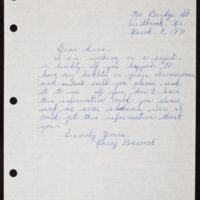 Bridge St
Westbrook, Me.
March 8, 1971
Dear Sirs,
I am working on a project,
on . If you happen to
have any booklets on
and could you please, send
it to me. If you don't have
this information could you please
send me some address where I
could get this information thank
you.
Sincerely Yours,